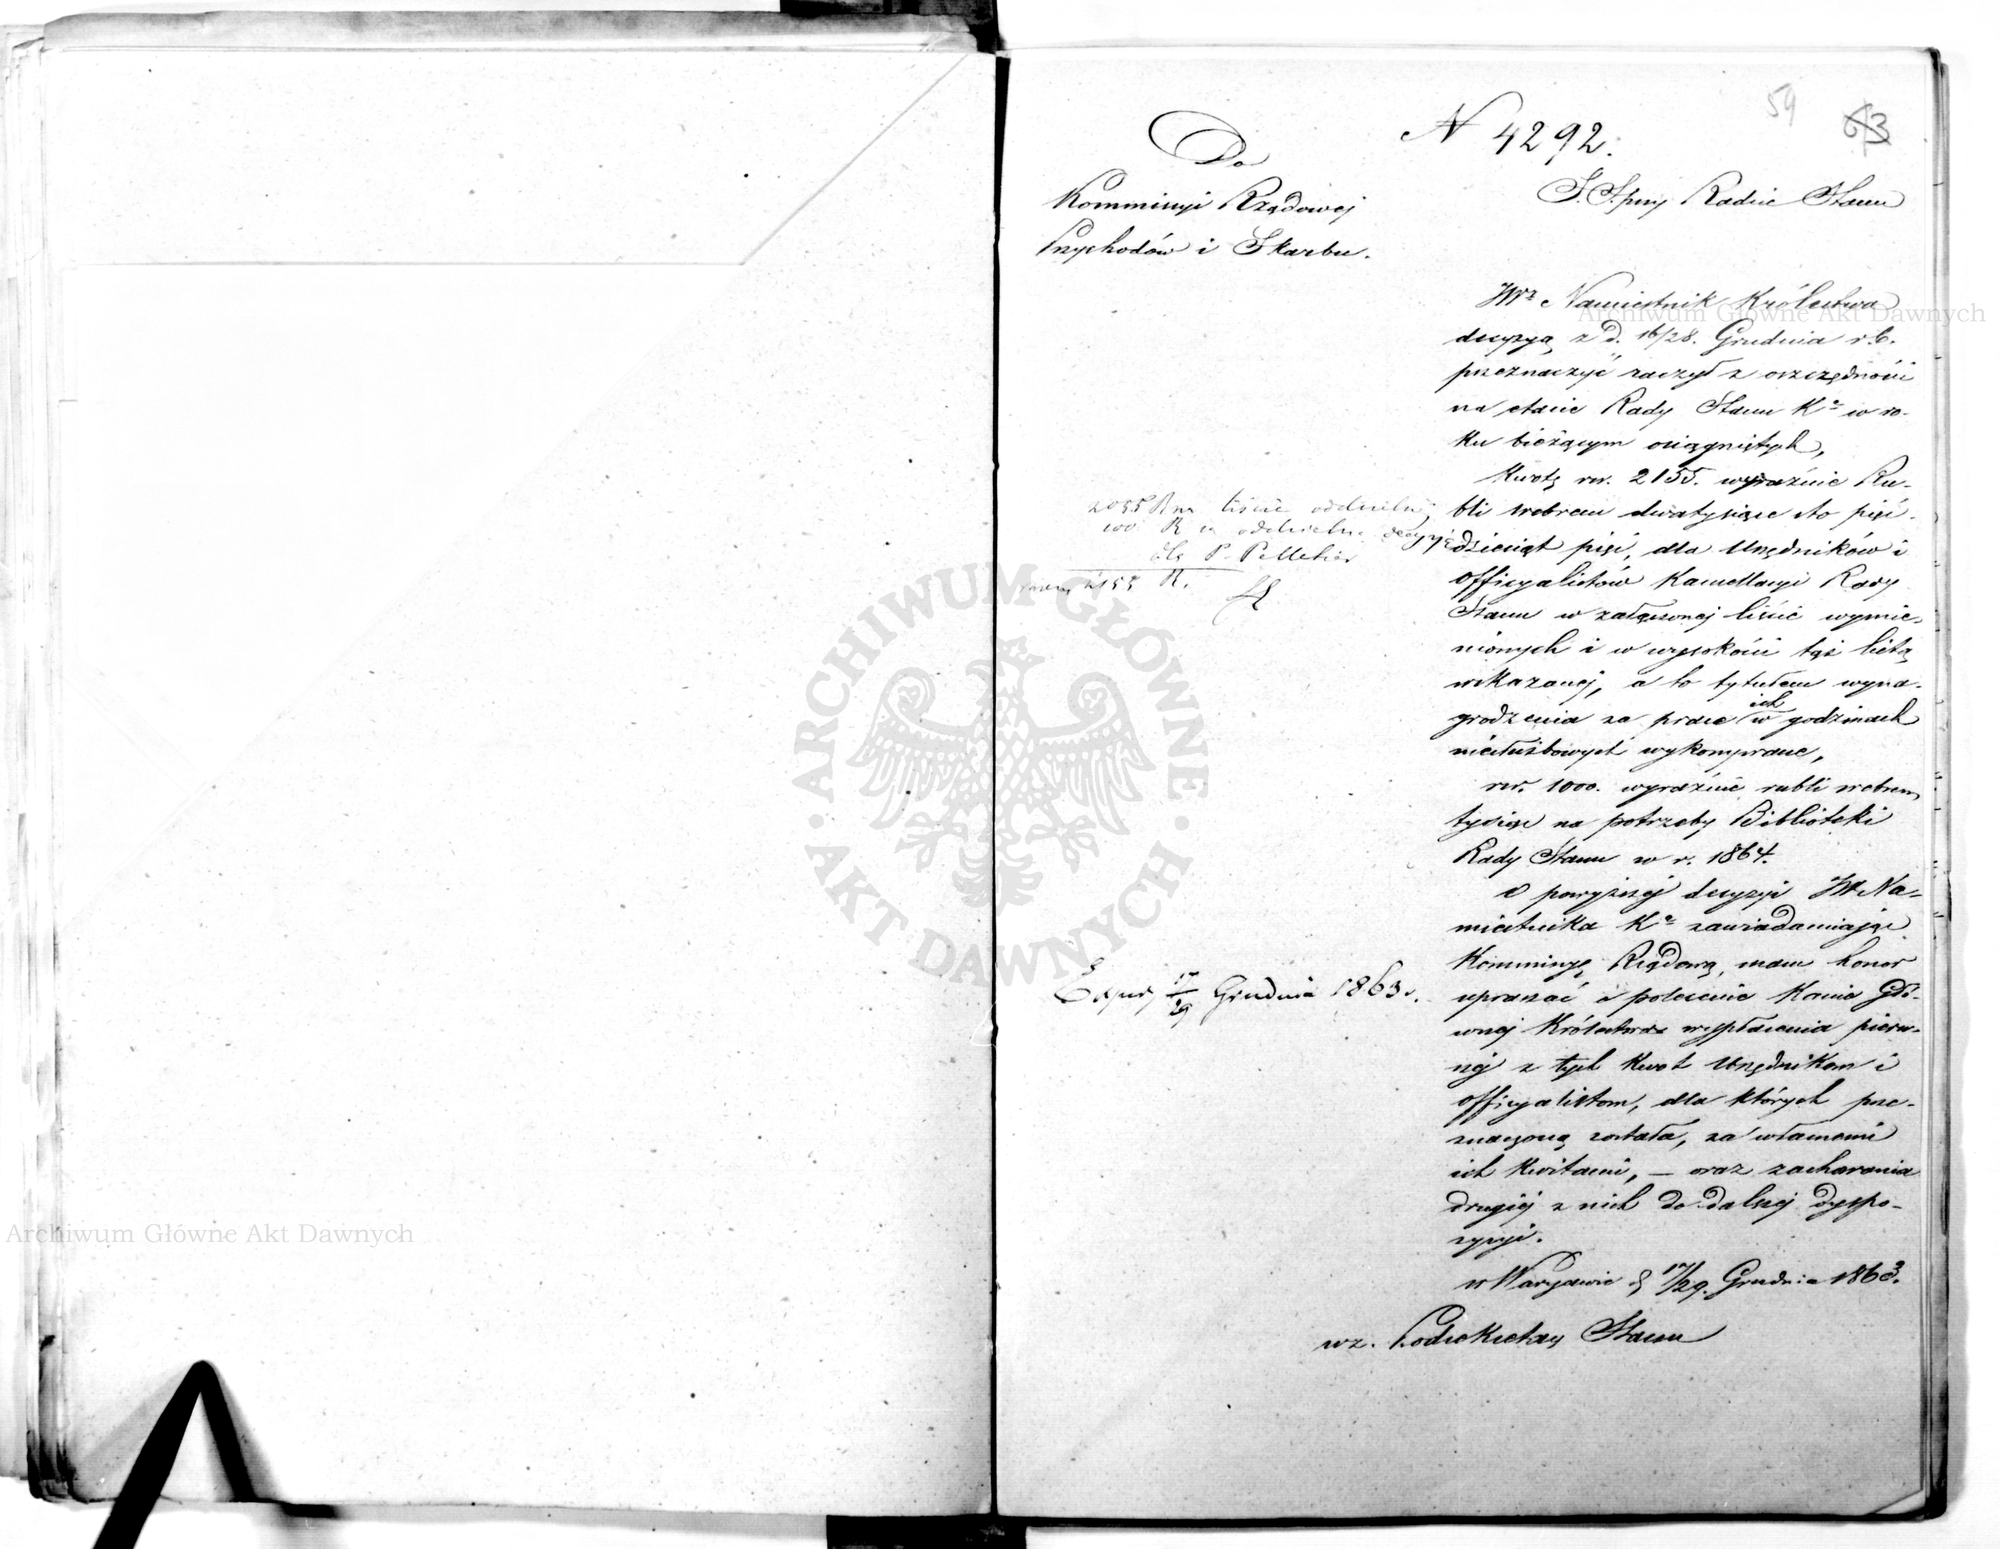 59
63
N 4292.
Do
Kommissyi Rządowej
Przychodów i Skarbu.
S.S. przy Radzie Stanu
JWż Namiestnik Królestwa
decyzyą z d. 16/28. Grudnia r.b.
przeznaczyć raczył z oszczędności
na etacie Rady Stanu Kа w ro-
ku bieżącym osiągniętych,
Kwotę rsr. 2155. wyraźnie Ru-
bli srebrem dwatysiące sto pięć-
dziesiąt pięć, dla Urzędników i
Officyalistów Kancellaryi Rady
Stanu w załączonej liście wymie-
nionych i w wysokości tąż listą
wskazanej, a to tytułem wyna-
grodzenia za prace ich w godzinach
niesłużbowych wykonywane,
rsr. 1000. wyraźnie rubli srebrem
tysiąc na potrzeby Biblioteki
Rady Stanu w r. 1864.
O powyższej decyzyi JW Na-
miestnika Kа zawiadamiając
Kommissyę Rządową, mam honor
upraszać o polecenie Kassie Głó-
wnej Królestwa wypłacenia pierw-
szej z tych kwot Urzędnikom i
Officyalistom, dla których prze-
znaczoną została, za własnemi
ich kwitami, — oraz zachowania
drugiej z nich do dalszej dyspo-
zycyi.
w Warszawie d 17/29. Grudnia 1863.
wz. Podsekretarz Stanu
2055 R na liście oddzielnej
100 R w oddzielnej decyzyi
dla P. Pelletier
razem 2155 R.
Exped. 17/29 Grudnia 1863 r.
ARCHIWUM GŁÓWNE AKT DAWNYCH
Archiwum Główne Akt Dawnych
Archiwum Główne Akt Dawnych